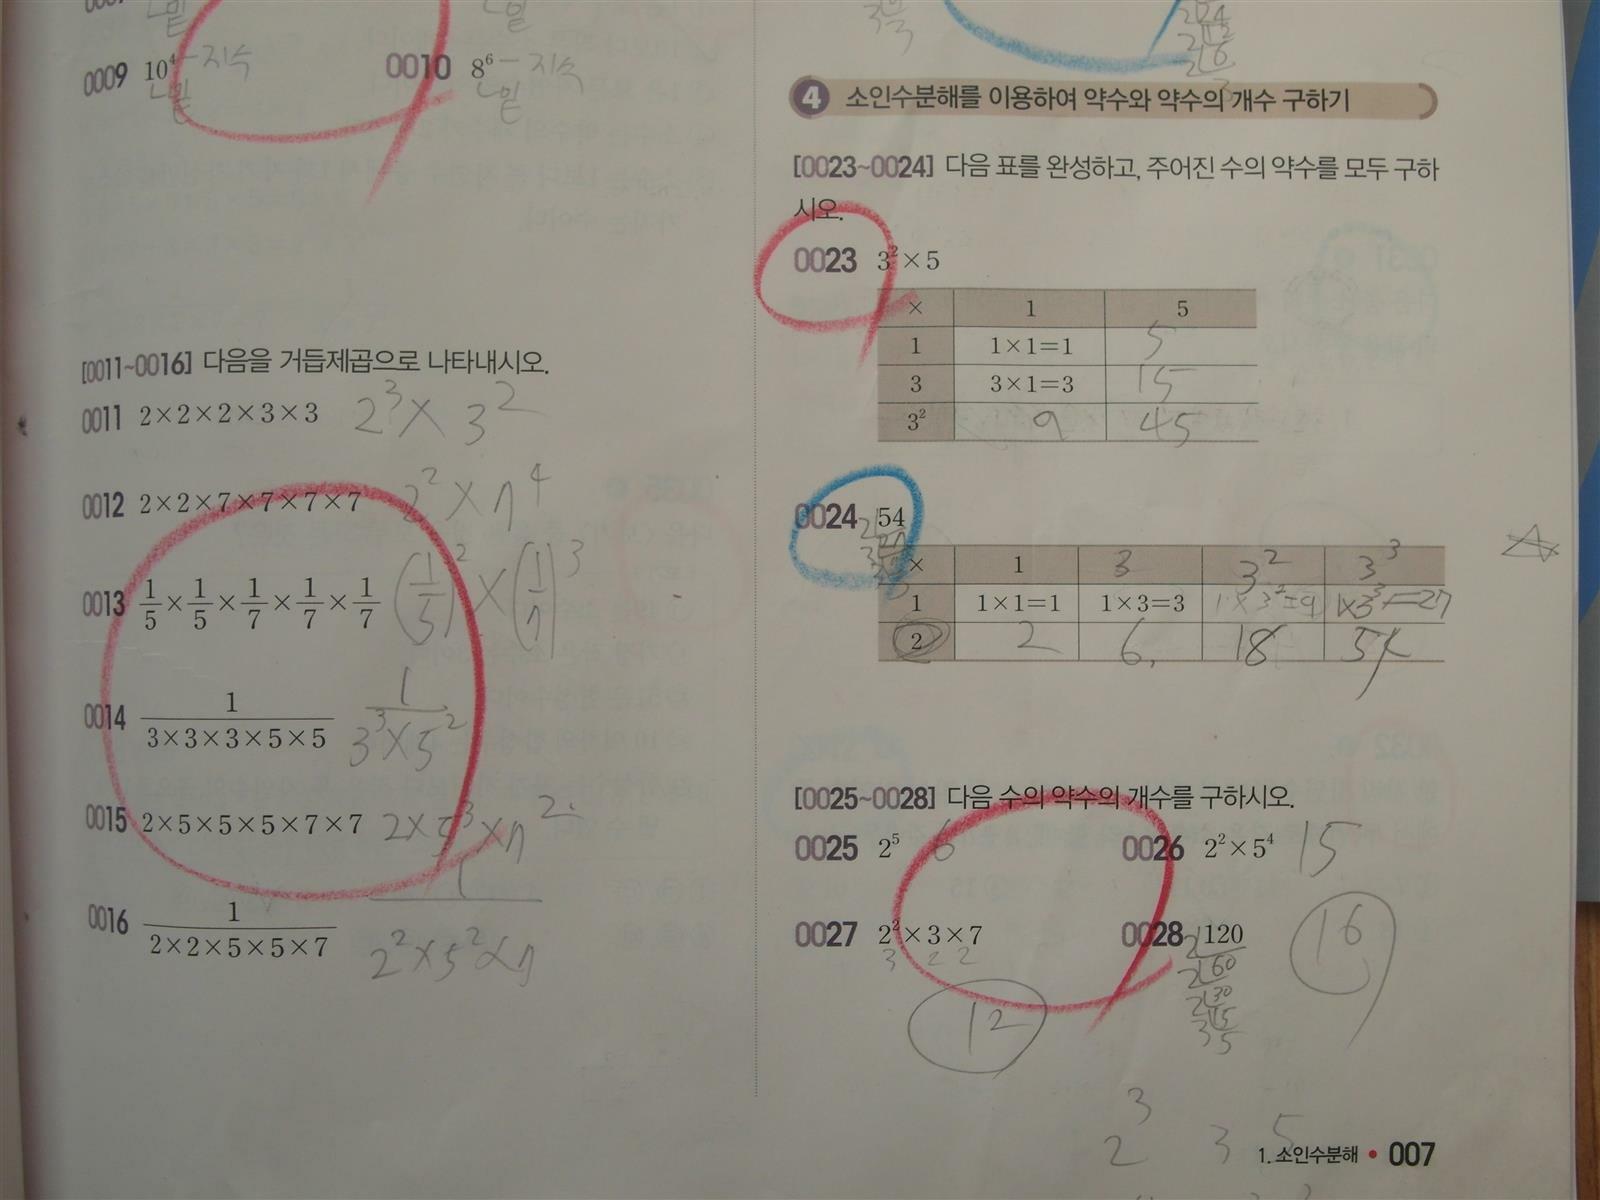 0009 10⁴ - 지수
밑
0010 8⁶ - 지수
밑
[0011~0016] 다음을 거듭제곱으로 나타내시오.
0011 2×2×2×3×3 2³×3²
0012 2×2×7×7×7×7 2²×7⁴
0013 1/5×1/5×1/7×1/7×1/7 (1/5)²×(1/7)³
0014 1/(3×3×3×5×5) 1/(3³×5²)
0015 2×5×5×5×7×7 2×5³×7²
0016 1/(2×2×5×5×7) 1/(2²×5²×7)
2 24
2 12
2 6
3
4 소인수분해를 이용하여 약수와 약수의 개수 구하기
[0023~0024] 다음 표를 완성하고, 주어진 수의 약수를 모두 구하
시오.
0023 3²×5
× 1 5
1 1×1=1 5
3 3×1=3 15
3² 9 45
0024 2 54
3 27
× 1 3 3² 3³
1 1×1=1 1×3=3 1×3²=9 1×3³=27
2 2 6 18 54
[0025~0028] 다음 수의 약수의 개수를 구하시오.
0025 2⁵ 6
0026 2²×5⁴ 15
0027 2²×3×7
3 2 2
12
0028 2 120
2 60
2 30
3 15
5
16
2³ 3 5
1. 소인수분해 • 007